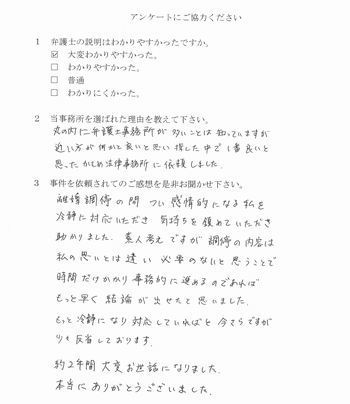 アンケートにご協力ください
1 弁護士の説明はわかりやすかったですか。
☑ 大変わかりやすかった。
□ わかりやすかった。
□ 普通
□ わかりにくかった。
2 当事務所を選ばれた理由を教えて下さい。
丸の内に弁護士事務所が多いことは知っていますが
近い方が何かと良いと思い探した中で1番良いと
思ったかじめ法律事務所に依頼しました。
3 事件を依頼されてのご感想を是非お聞かせ下さい。
離婚調停の間 つい感情的になる私を
冷静に対応いただき 気持ちを鎮めていただき
助かりました。素人考えですが調停の内容は
私の思いとは違い 必要のないと思うことで
時間だけかかり事務的に進めるのであれば
もっと早く結論が出せたと思いました。
もっと冷静になり対応していればと今さらですが
少々反省しております。
約2年間大変お世話になりました。
本当にありがとうございました。